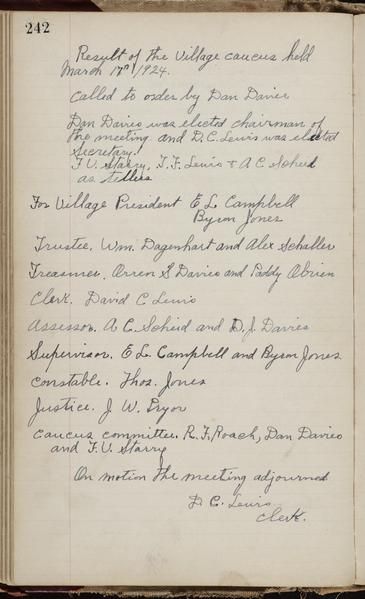 242
Result of the Village caucus held
March 17th 1924.
Called to order by Dan Davies
Dan Davies was elected chairman of
the meeting and D.C. Lewis was elected
Secretary.
F.V. Starry, T.F. Lewis + A C Scheid
as tellers
For Village President E L Campbell
Byron Jones
Trustee. Wm. Dagenhart and Alex Schaller
Treasurer. Orren S Davies and Paddy Obrien
Clerk. David C Lewis
Assessor. A C. Scheid and D. J. Davies
Supervisor. E L. Campbell and Byron Jones
Constable. Thos. Jones
Justice. J W. Pryor
Caucus committee. R. F. Roach, Dan Davies
and F.V. Starry
On motion the meeting adjourned
D. C. Lewis
Clerk.